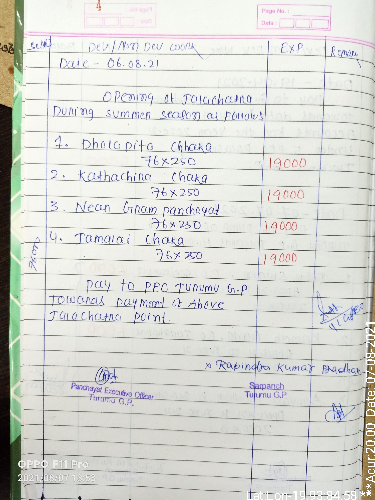 4
Page No.
Date
Dev/Non Dev work
EXP
Date - 06.08.21
Opening of Jalachatra
During summer season as follows
1. Dholapita Chhaka
76x250
19000
2. Kathachina Chaka
76x250
19000
3. Near Gram panchayat
76x250
19000
4. Tamalai Chaka
76x250
19000
pay to PEO TURUMU G.P
Towards payment of above
Jalachatra point.
Rabindra Kumar Pradhan
Panchayat Executive Officer
Turumu G.P.
Sarpanch
Turumu G.P
OPPO F11 Pro
2021/08/07 13:53
***Acur 20.00 Date: 07-08-2021